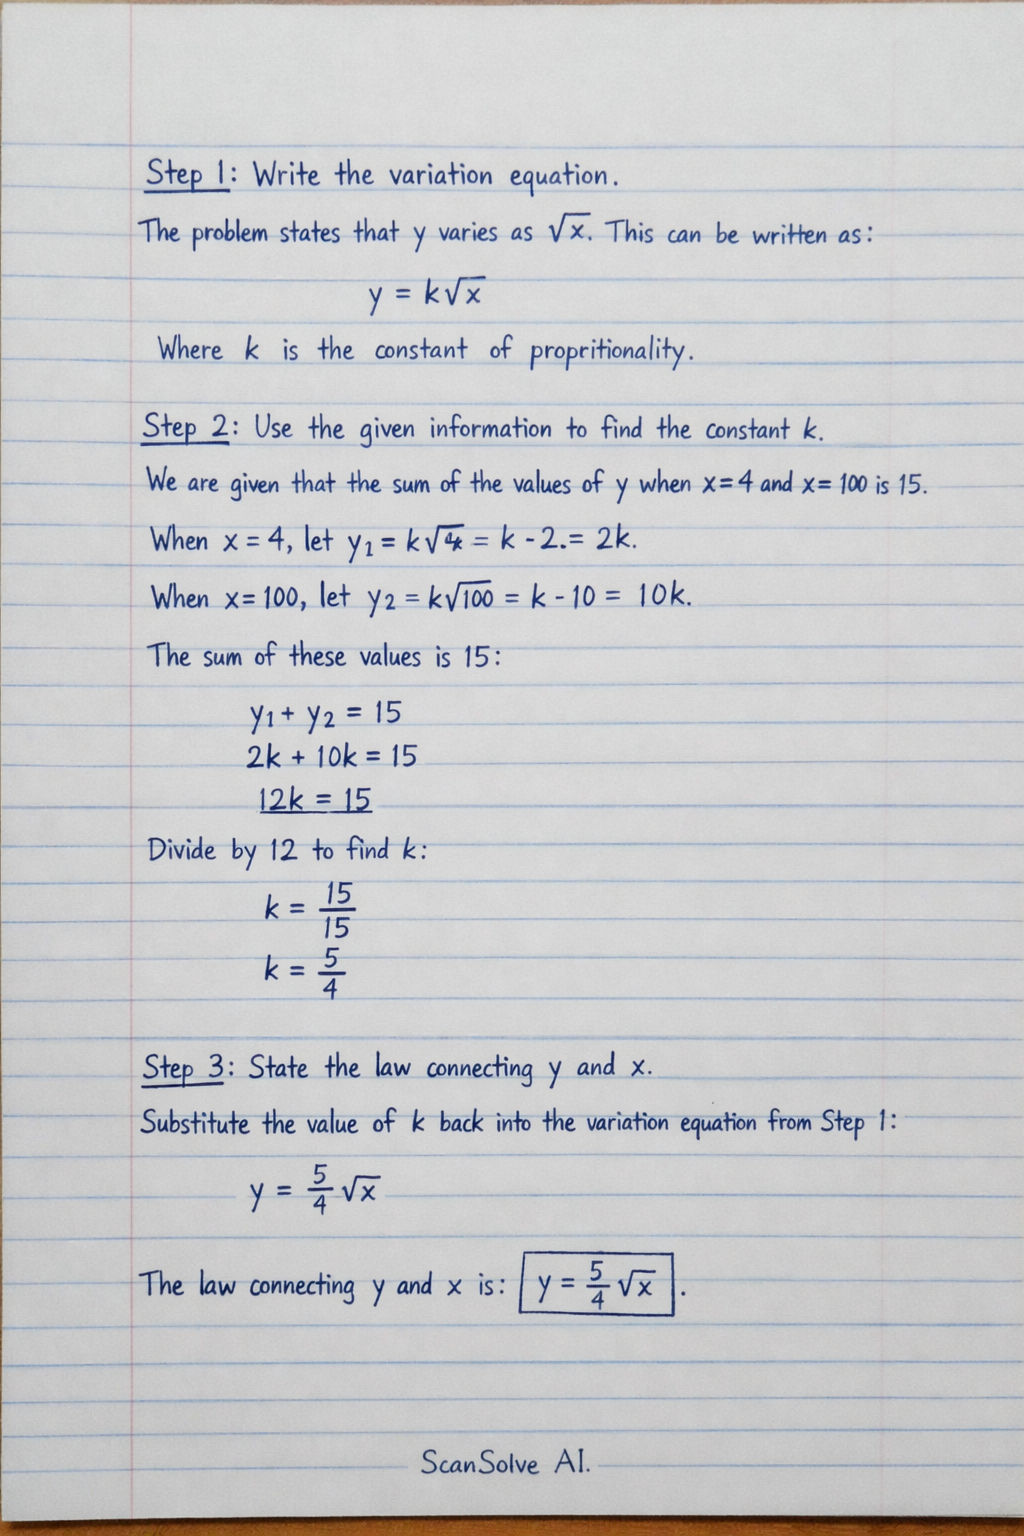 Step 1: Write the variation equation.
The problem states that y varies as √x. This can be written as:
y = k√x
Where k is the constant of propritionality.
Step 2: Use the given information to find the constant k.
We are given that the sum of the values of y when x=4 and x= 100 is 15.
When x = 4, let y₁ = k√4 = k - 2.= 2k.
When x= 100, let y₂ = k√100 = k - 10 = 10k.
The sum of these values is 15:
y₁ + y₂ = 15
2k + 10k = 15
12k = 15
Divide by 12 to find k:
k = 15/15
k = 5/4
Step 3: State the law connecting y and x.
Substitute the value of k back into the variation equation from Step 1:
y = 5/4 √x
The law connecting y and x is: y = 5/4 √x .
ScanSolve AI.